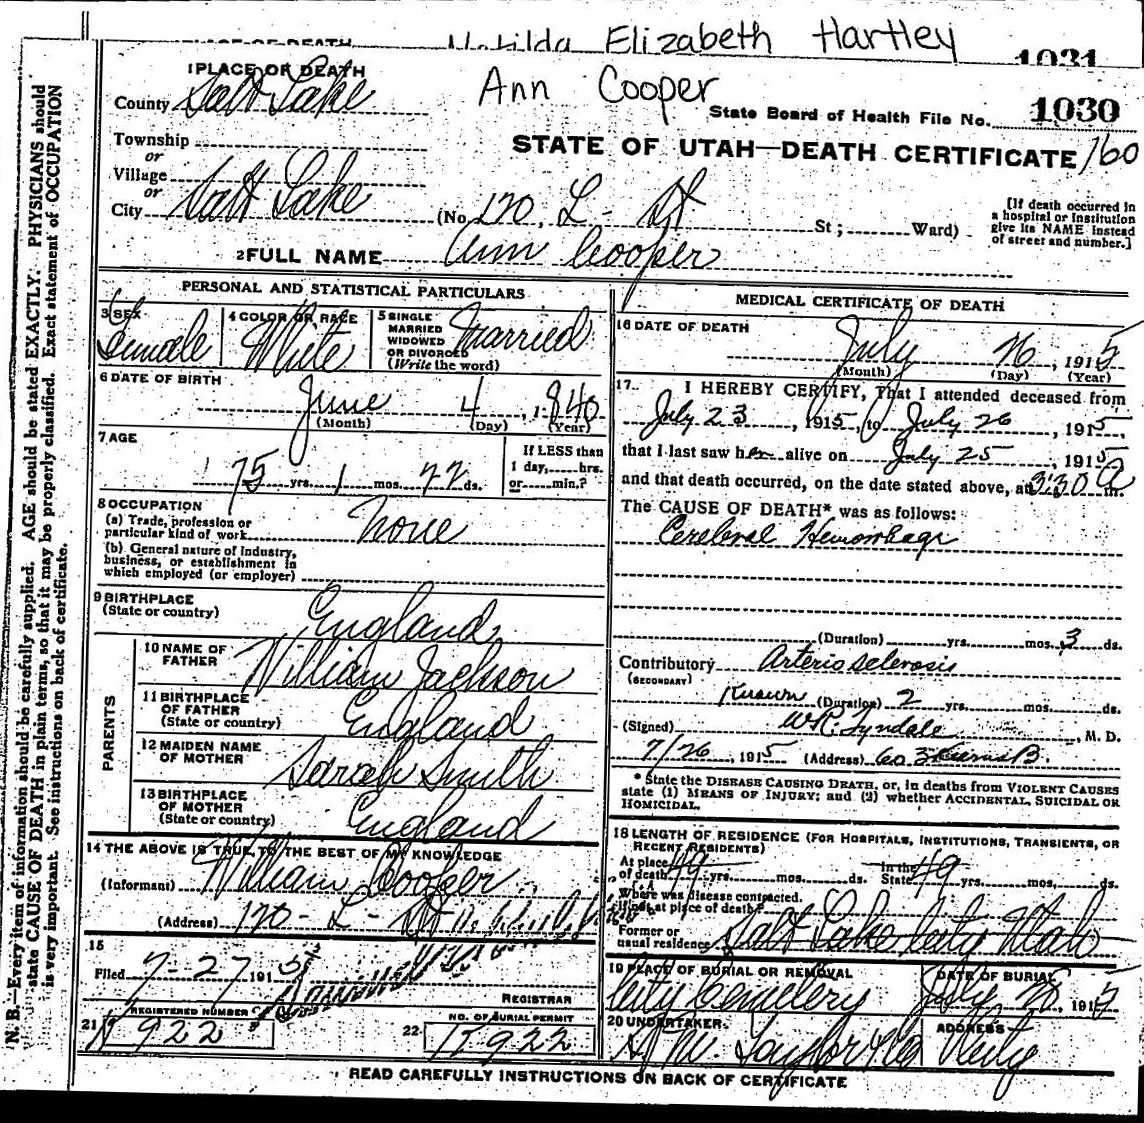 Matilda Elizabeth Hartley
PLACE OF DEATH
1031
1 PLACE OF DEATH
Ann Cooper
County Salt Lake
State Board of Health File No. 1030
Township
or
STATE OF UTAH—DEATH CERTIFICATE 160
Village
or
City Salt Lake (No. 170, L - St St; Ward)
[If death occurred in a hospital or institution give its NAME instead of street and number.]
2 FULL NAME Ann Cooper
PERSONAL AND STATISTICAL PARTICULARS
3 SEX Female
4 COLOR OR RACE White
5 SINGLE MARRIED WIDOWED OR DIVORCED (Write the word) Married
6 DATE OF BIRTH
June 4, 1840
(Month) (Day) (Year)
7 AGE
75 yrs. 1 mos. 22 ds.
If LESS than 1 day, hrs. or min.?
8 OCCUPATION
(a) Trade, profession or particular kind of work None
(b) General nature of Industry, business, or establishment in which employed (or employer)
9 BIRTHPLACE
(State or country) England
PARENTS
10 NAME OF FATHER William Jackson
11 BIRTHPLACE OF FATHER (State or country) England
12 MAIDEN NAME OF MOTHER Sarah Smith
13 BIRTHPLACE OF MOTHER (State or country) England
14 THE ABOVE IS TRUE TO THE BEST OF MY KNOWLEDGE
(Informant) William Cooper
(Address) 170 - L - St
15
Filed 7-27 1915
REGISTRAR
21 REGISTERED NUMBER
22 NO. OF BURIAL PERMIT
MEDICAL CERTIFICATE OF DEATH
16 DATE OF DEATH
July 26, 1915
(Month) (Day) (Year)
17. I HEREBY CERTIFY, That I attended deceased from
July 23, 1915, to July 26, 1915,
that I last saw her alive on July 25, 1915
and that death occurred, on the date stated above, at 3:30 a m.
The CAUSE OF DEATH* was as follows:
Cerebral Hemorrhage
(Duration) yrs. mos. 3 ds.
Contributory Arterio sclerosis
(SECONDARY)
Known (Duration) 2 yrs. mos. ds.
(Signed) W.R. Tyndale, M. D.
7/26, 1915 (Address)
* State the DISEASE CAUSING DEATH, or, in deaths from VIOLENT CAUSES
state (1) MEANS OF INJURY; and (2) whether ACCIDENTAL, SUICIDAL OR
HOMICIDAL.
18 LENGTH OF RESIDENCE (FOR HOSPITALS, INSTITUTIONS, TRANSIENTS, OR
RECENT RESIDENTS)
At place of death 49 yrs. mos. ds. In the State 49 yrs. mos. ds.
Where was disease contracted,
if not at place of death?
Former or usual residence Salt Lake City Utah
19 PLACE OF BURIAL OR REMOVAL
City Cemetery
DATE OF BURIAL
July 1915
20 UNDERTAKER
ADDRESS
City
READ CAREFULLY INSTRUCTIONS ON BACK OF CERTIFICATE
N. B.—Every item of information should be carefully supplied. AGE should be stated EXACTLY. PHYSICIANS should
state CAUSE OF DEATH in plain terms, so that it may be properly classified. Exact statement of OCCUPATION
is very important. See instructions on back of certificate.